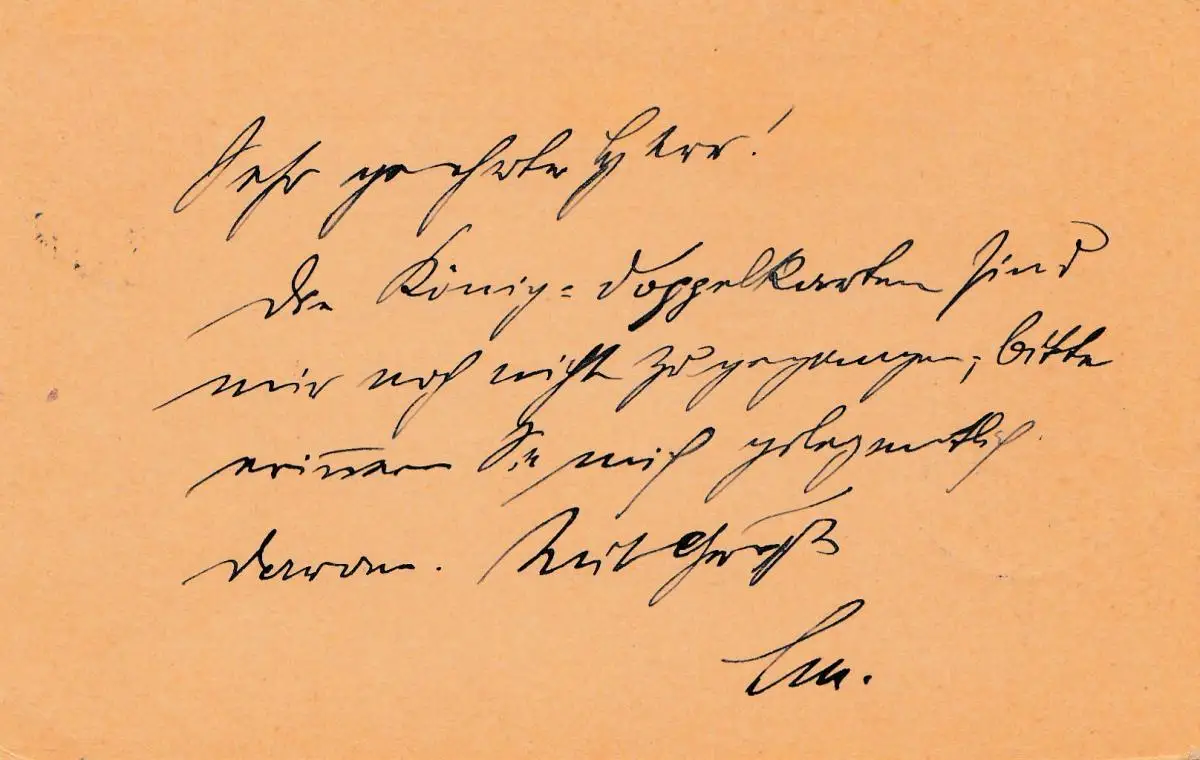 Sehr geehrter Herr!
Die König=Doppelkarten sind
mir noch nicht zugegangen; bitte
erinnern Sie mich gelegentlich
daran. Mit Gruß